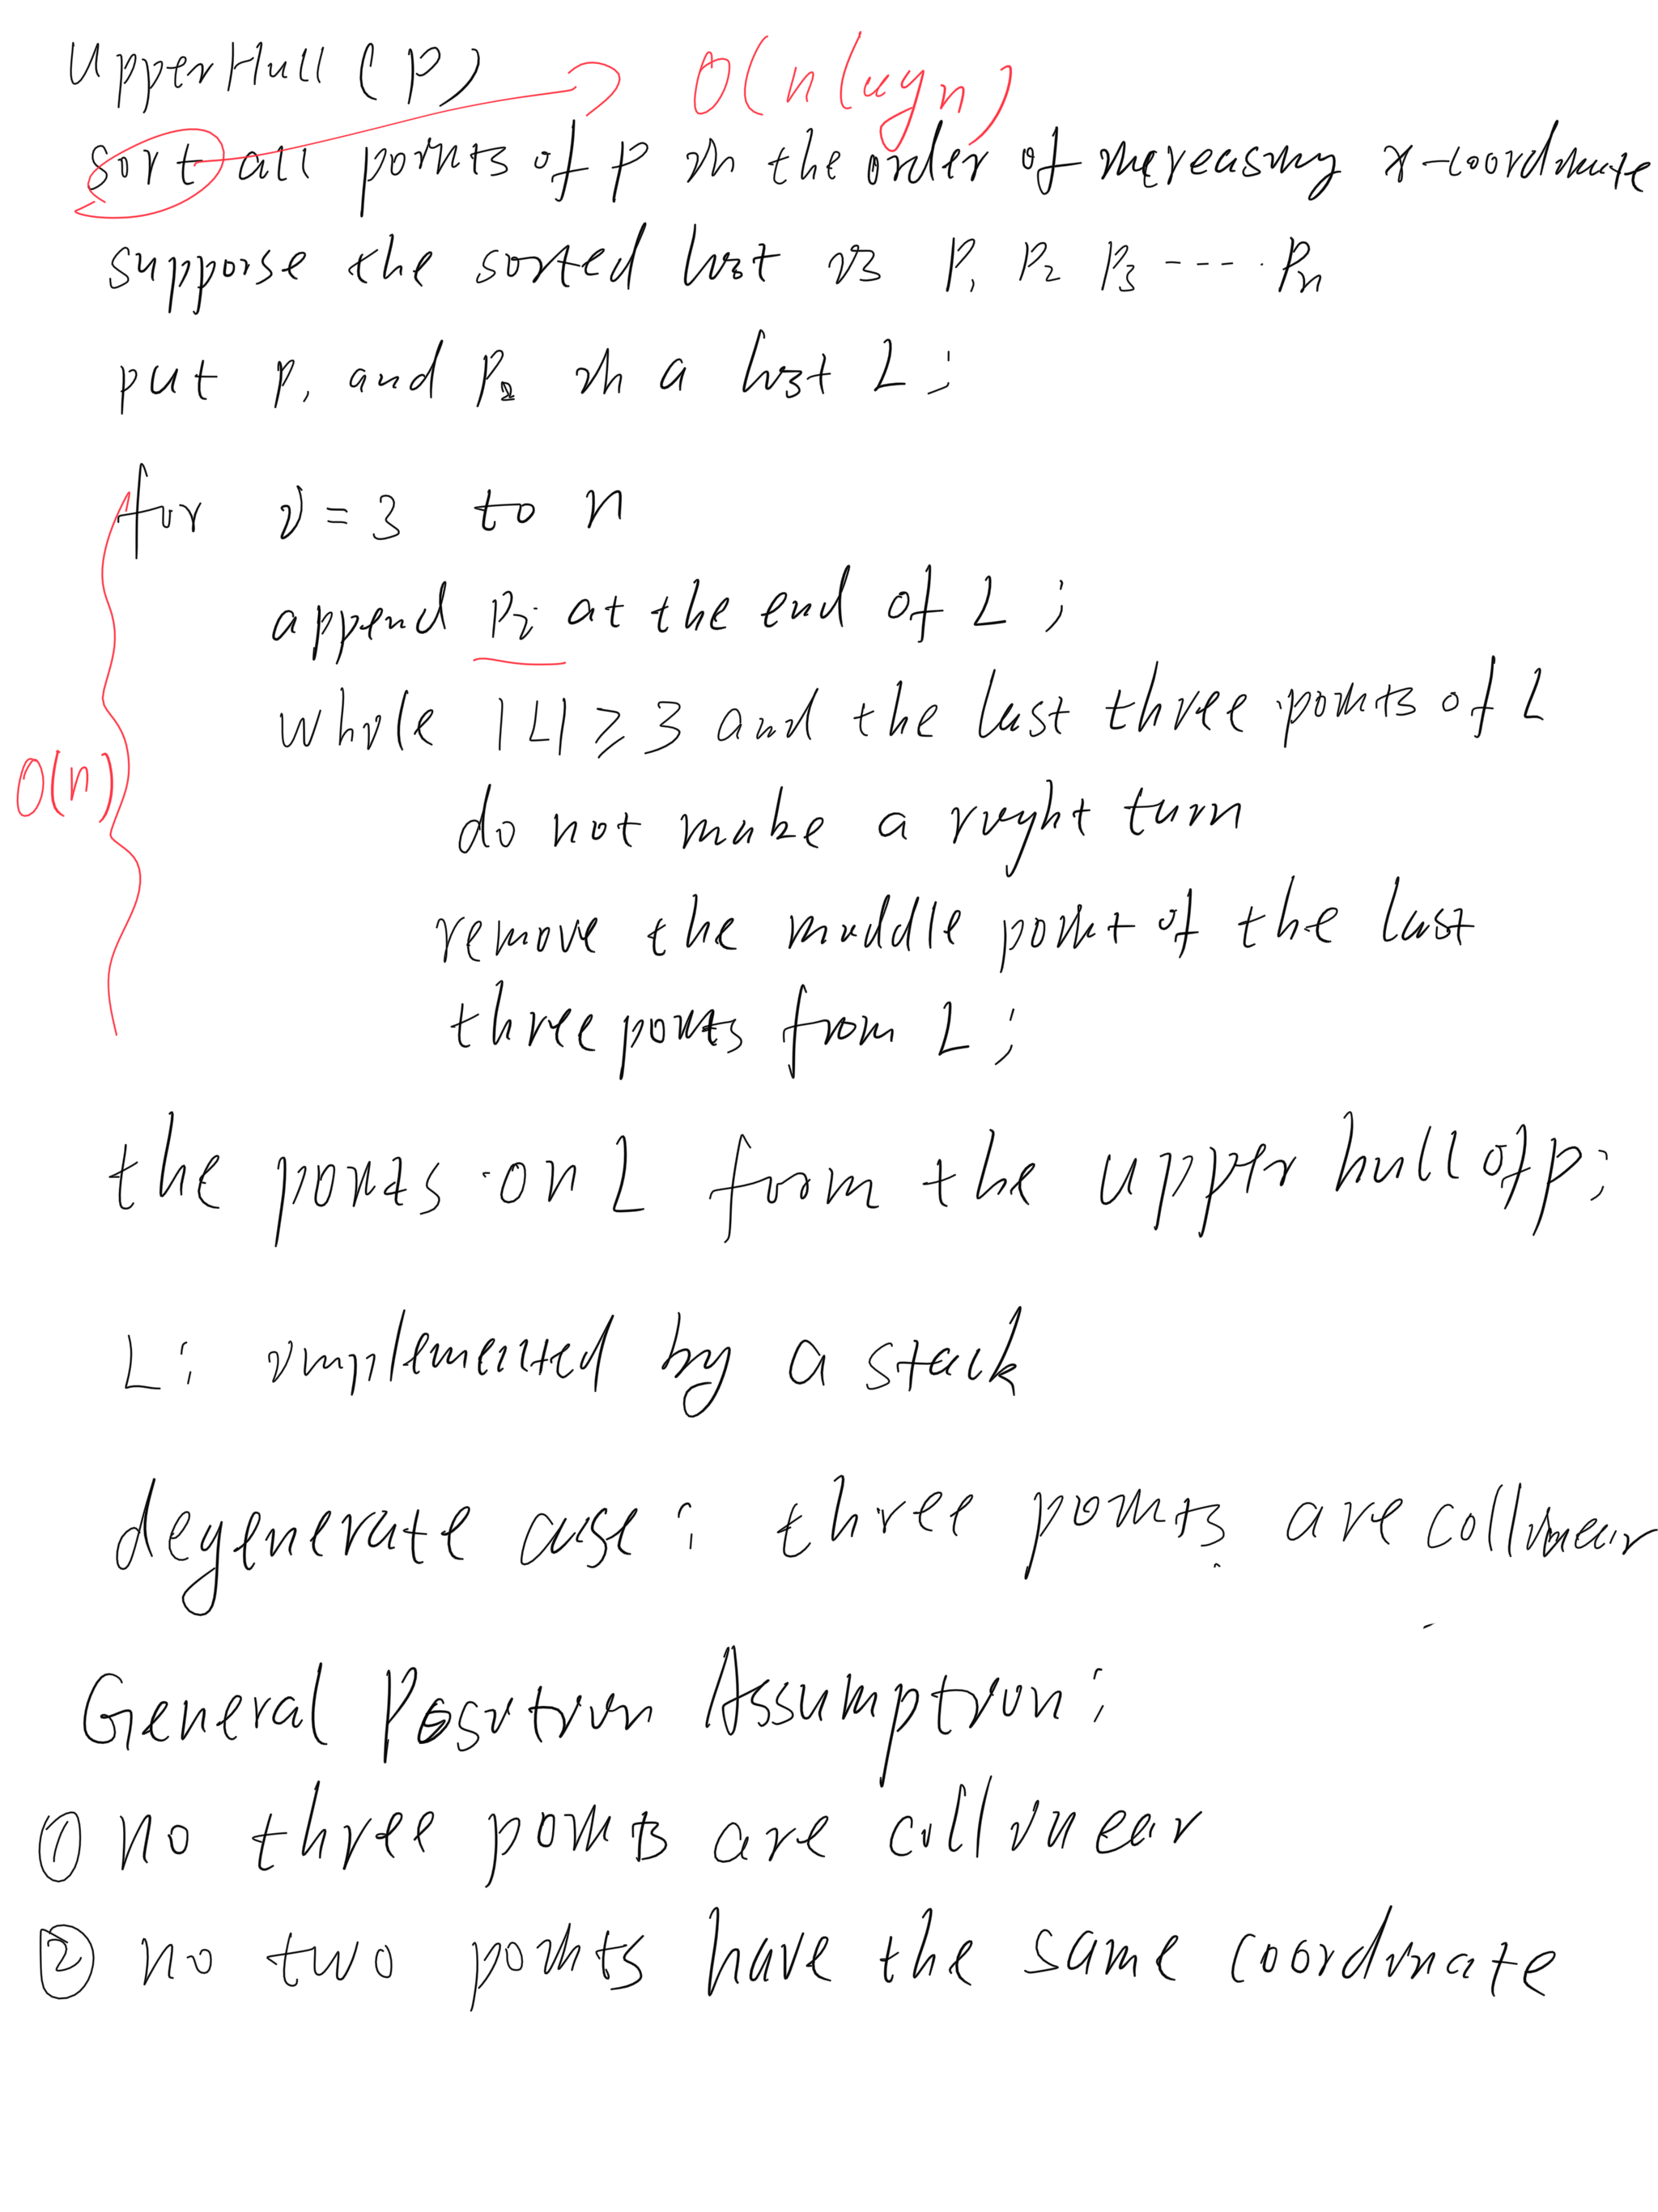 UpperHull (P)
O(n log n)
sort all points of P in the order of increasing x-coordinate
suppose the sorted list is P1 P2 P3 ---- . Pn
put P1 and P2 in a list L ;
for i = 3 to n
append Pi at the end of L ;
while |L| ≥ 3 and the last three points of L
O(n)
do not make a right turn
remove the middle point of the last
three points from L ;
the points on L from the upper hull of P ;
L : implemented by a stack
degenerate case : three points are collinear
General Position Assumption :
① no three points are collinear
② no two points have the same coordinate